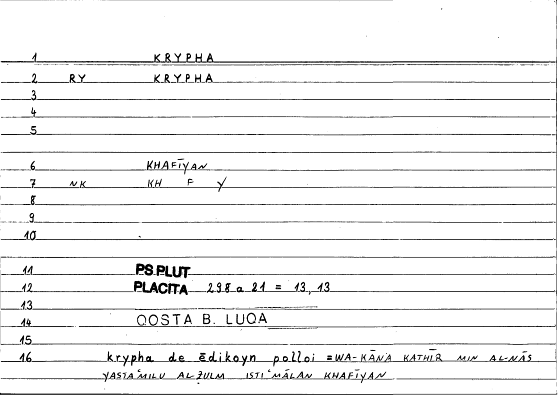 1 KRYPHA
2 RY KRYPHA
3
4
5
6 KHAFĪYAN
7 NK KH F Y
8
9
10
11 PS.PLUT
12 PLACITA 298 a 21 = 13, 13
13
14 QOSTA B. LUQA
15
16 krypha de ēdikoyn polloi = WA-KĀNA KATHĪR MIN AL-NĀS
YASTAʿMILU AL-ẒULM ISTIʿMĀLAN KHAFĪYAN